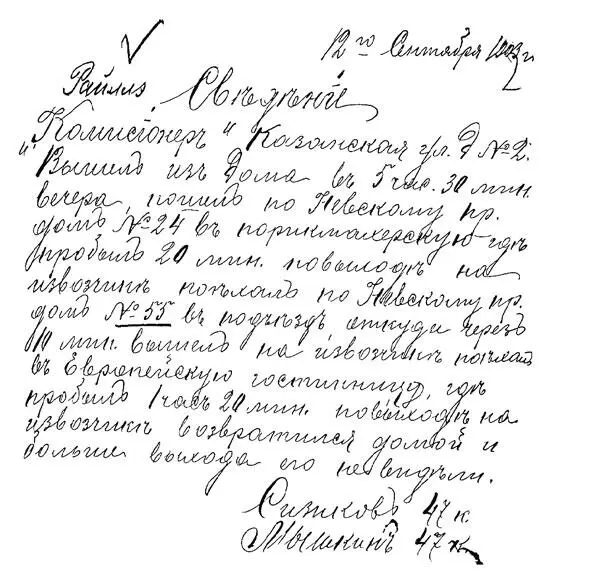 12го Сентября 1903 г.
Райллэ. Свѣдѣнiй
"Комисiонеръ" Казанская ул. д №2.
Вышелъ изъ дома въ 5 час. 30 мин.
вечера, пошелъ по Невскому пр.
домъ №24 въ порикмахерскую гдѣ
пробылъ 20 мин. повыходѣ на
извозчикѣ поѣхалъ по Невскому пр.
домъ №55 въ подъѣздъ откуда черезъ
10 мин. вышелъ на извозчикѣ поѣхалъ
въ Европейскую гостинницу, гдѣ
пробылъ 1 часъ 20 мин. повыходѣ на
извозчикѣ возвратился домой и
больше выхода его не видѣли.
Сизиковъ 47 к.
Мышкинъ 47 к.